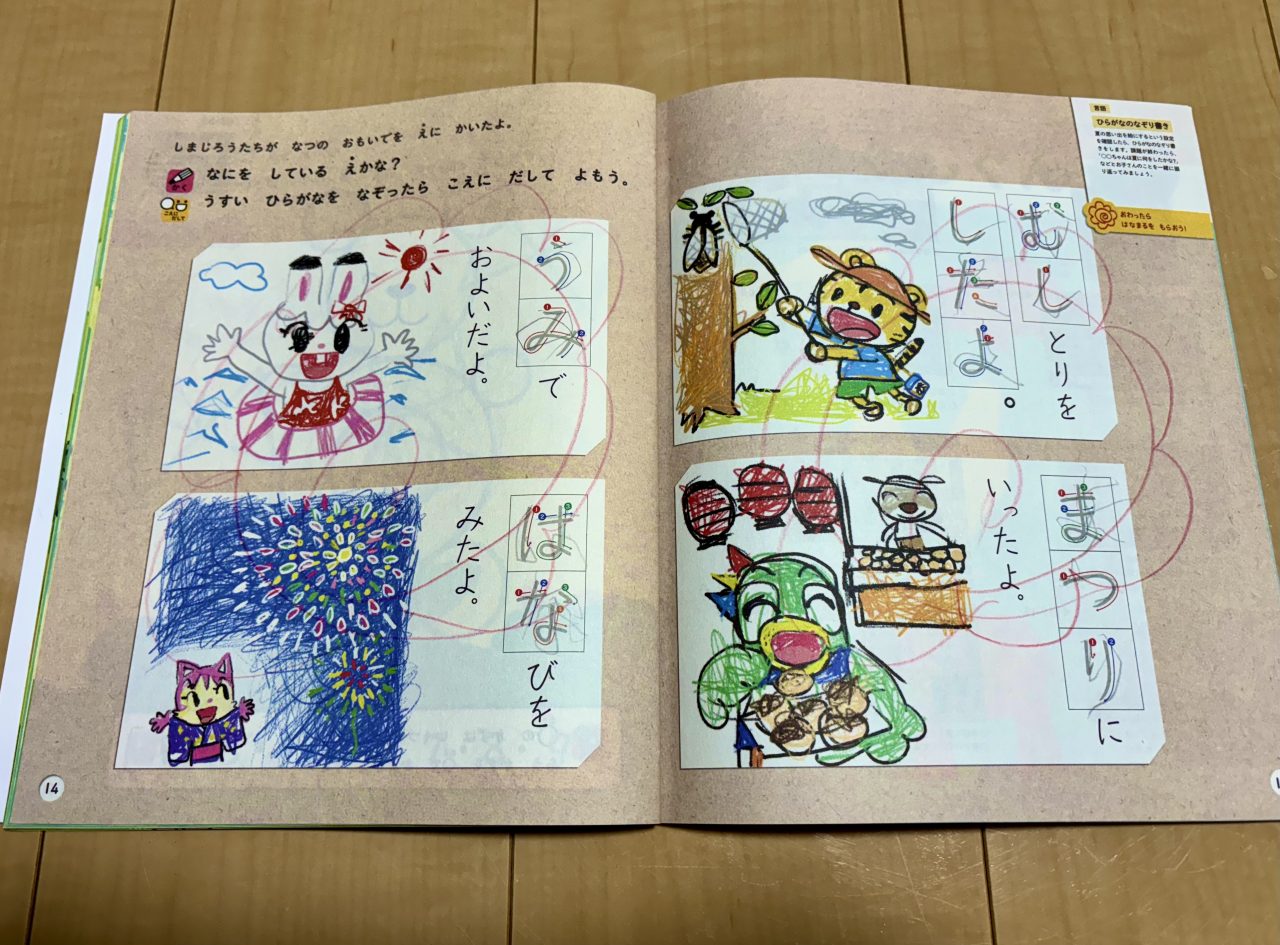 しまじろうたちが なつの おもいでを えに かいたよ。
かく
なにを している えかな?
こえに だして
うすい ひらがなを なぞったら こえに だして よもう。
うみで
およいだよ。
はなびを
みたよ。
14
言語
ひらがなのなぞり書き
夏の思い出を絵にするという設定
を確認したら、ひらがなのなぞり書
きをします。課題が終わったら、
「○○ちゃんは夏に何をしたかな?」
などとお子さんのことを一緒に振
り返ってみましょう。
おわったら
はなまるを もらおう!
むしとりを
したよ。
まつりに
いったよ。